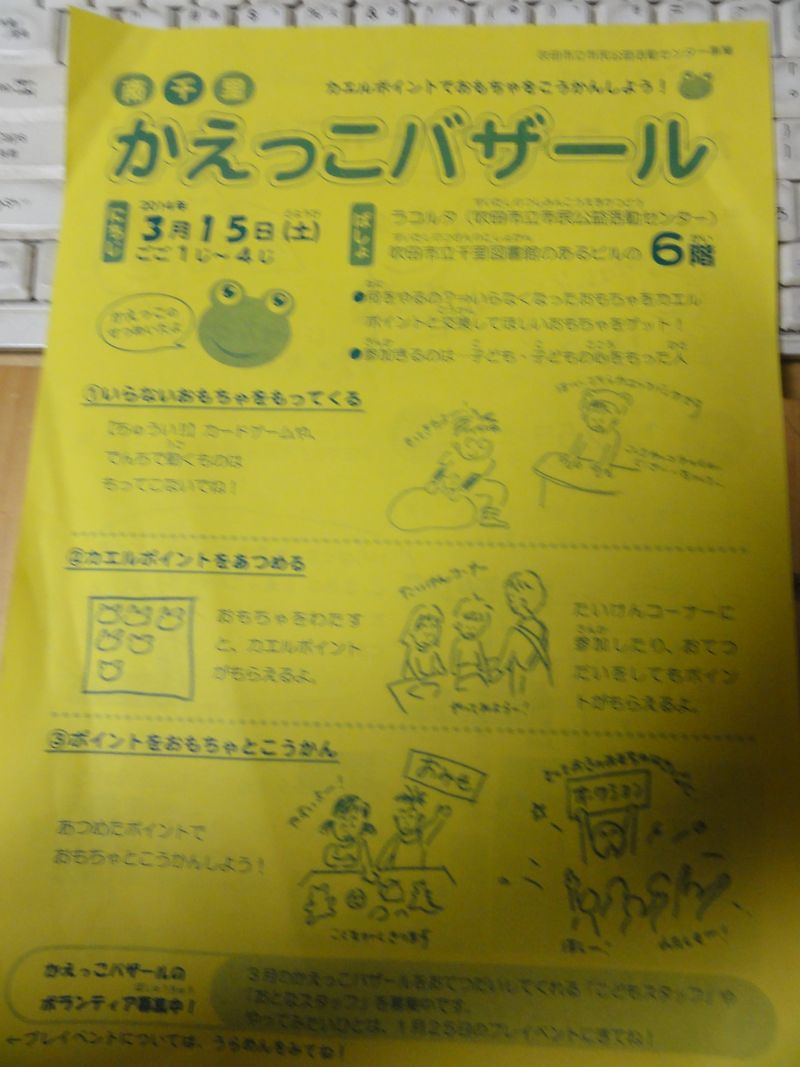 吹田市立市民公益活動センター事業
カエルポイントでおもちゃをこうかんしよう！
南千里
かえっこバザール
にちじ
2014年
3月15日(土)
ごご1じ〜4じ
ばしょ
ラコルタ（吹田市立市民公益活動センター）
吹田市立千里図書館のあるビルの 6階
かえっこの
せつめいだよ
●何をやるの？→いらなくなったおもちゃをカエル
ポイントと交換してほしいおもちゃをゲット！
●参加できるのは…子ども・子どもの心をもった人
①いらないおもちゃをもってくる
【ちゅうい!!】カードゲームや、
でんちで動くものは
もってこないでね！
②カエルポイントをあつめる
おもちゃをわたす
と、カエルポイント
がもらえるよ。
たいけんコーナー
やってみよう〜！
たいけんコーナーに
参加したり、おてつ
だいをしてもポイン
トがもらえるよ。
③ポイントをおもちゃとこうかん
あつめたポイントで
おもちゃとこうかんしよう！
おみせ
オークション
かえっこバザールの
ボランティア募集中！
3月のかえっこバザールをおてつだいしてくれる「こどもスタッフ」や
「おとなスタッフ」を募集中です。
やってみたいひとは、1月25日のプレイベントにきてね！
←プレイベントについては、うらめんをみてね！